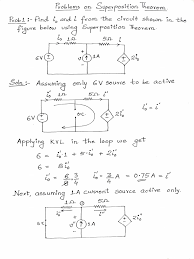 Problems on Superposition Theorem
Prob.1: Find i₀ and i from the circuit shown in the
figure below using Superposition Theorem.
i₀ 1Ω 5Ω i
6V 1A 2i₀
Soln:- Assuming only 6V source to be active
i₀' 1Ω 5Ω i'
6V 2i₀'
Applying KVL in the loop we get
6 = i₀'·1 + 5·i₀' + 2i₀'
6 = 8i₀'
i₀' = 6/8 = 3/4 A = 0.75A = i'
Next, assuming 1-A current source active only.
1Ω 5Ω
1A